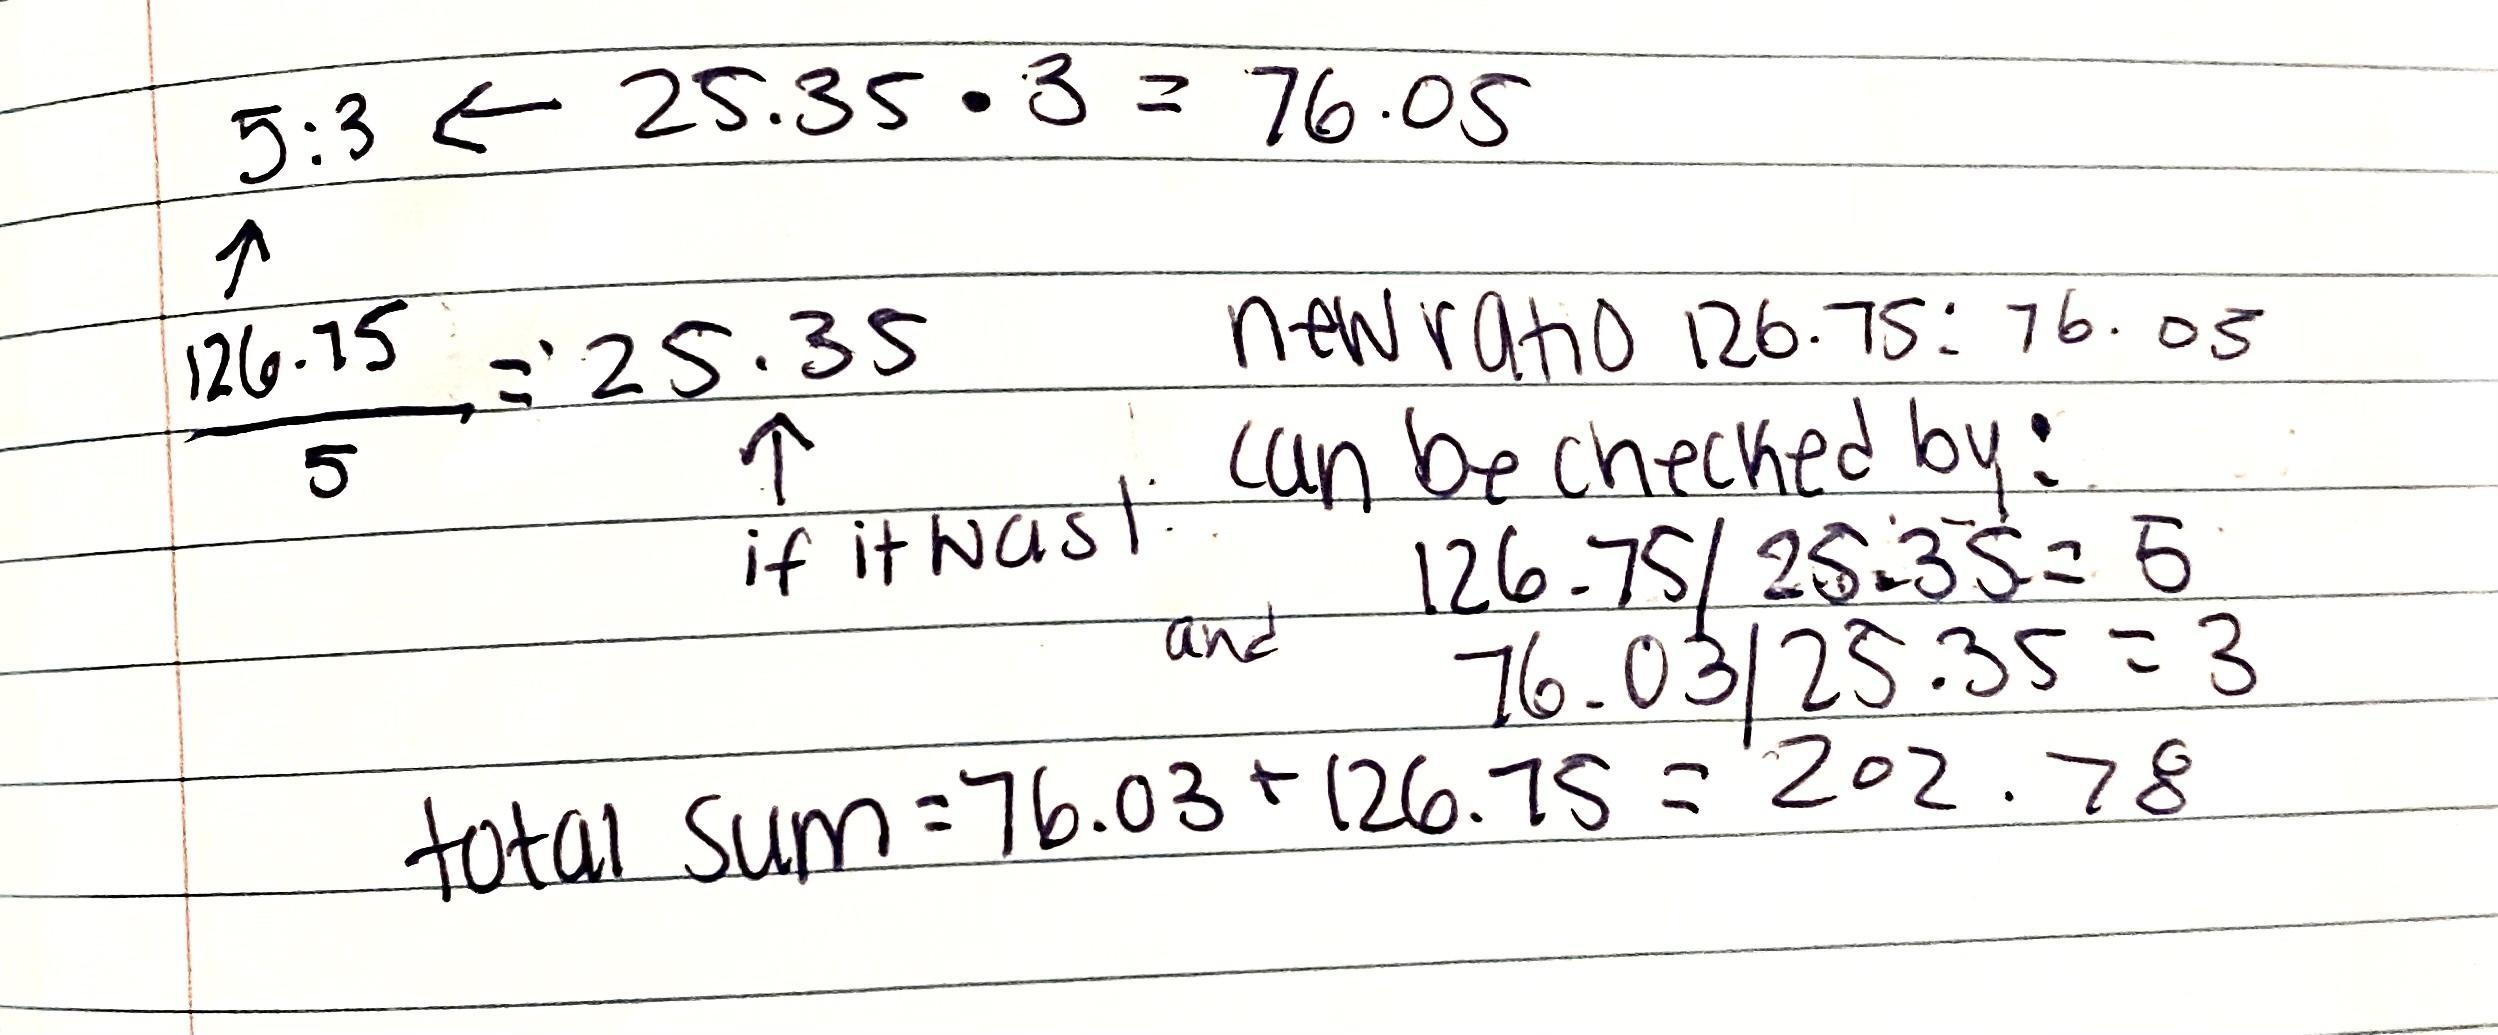 5:3 ← 25.35 • 3 = 76.05
↑
126.75 / 5 = 25.35
↑
if it was 1.
new ratio 126.75: 76.05
can be checked by:
126.75/25.35 = 5
and 76.03/25.35 = 3
total sum = 76.03 + 126.75 = 202.78